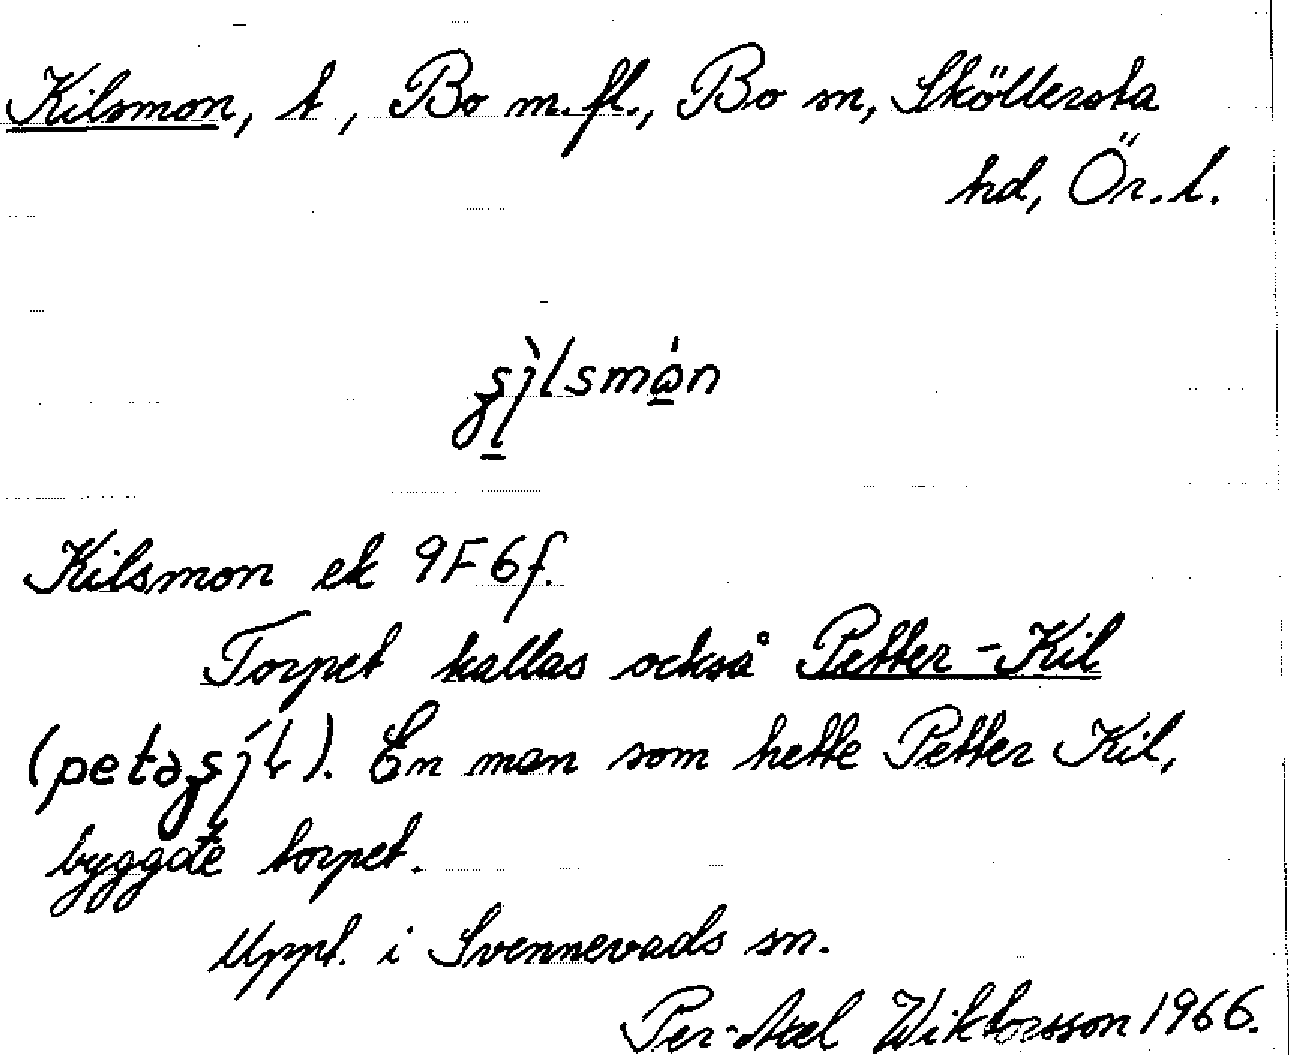 Kilsmon, t, Bo m.fl., Bo sn, Sköllersta
hd, Ör. l.
Kilsmon ek 9F6f.
Torpet kallas också Petter-Kil
En man som hette Petter Kil,
byggde torpet.
Uppt. i Svennevads sn.
Per-Axel Wiktorsson 1966.